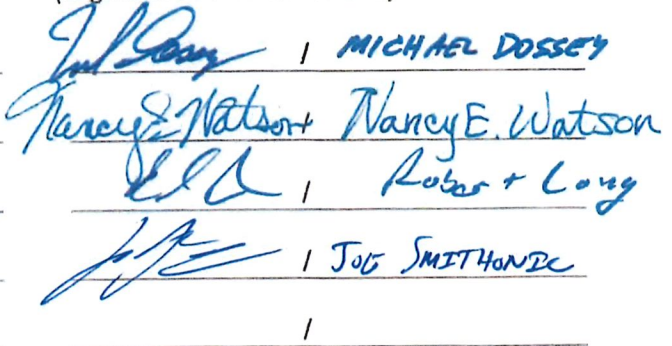 / MICHAEL DOSSEY
Nancy E Watson / Nancy E. Watson
/ Robert Long
/ JOE SMITHONIC
/